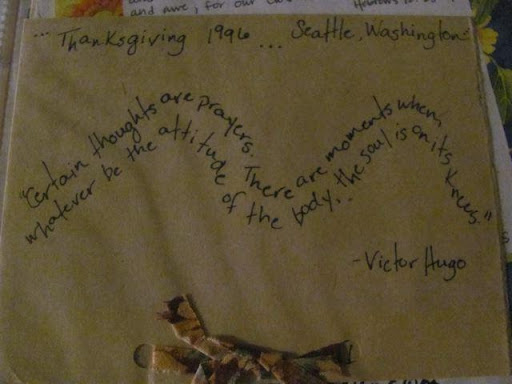 and awe, for our
... Thanksgiving 1996 ... Seattle, Washington
"Certain thoughts are prayers. There are moments when,
whatever be the attitude of the body, the soul is on its knees."
- Victor Hugo